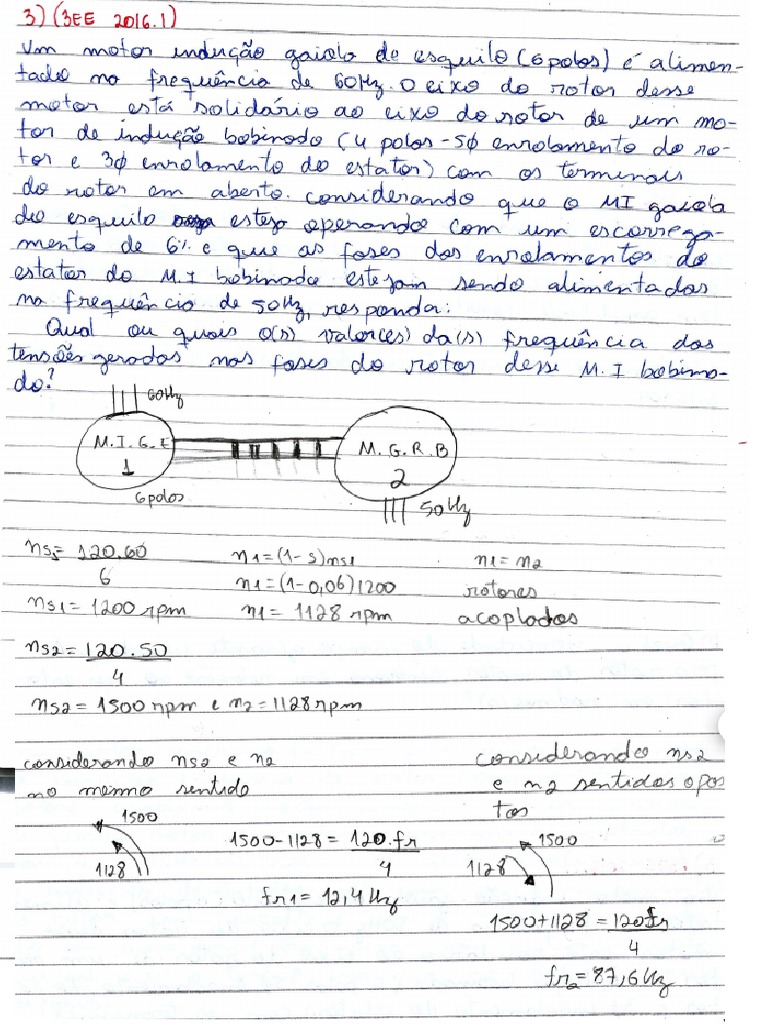 3) (3EE 2016.1)
Um motor indução gaiola de esquilo (6 polos) é alimen-
tado na frequência de 60Hz. O eixo do rotor desse
motor está solidário ao eixo do rotor de um mo-
tor de indução bobinado (4 polos - 5ϕ enrolamento do ro-
tor e 3ϕ enrolamento do estator) com os terminais
do rotor em aberto. considerando que o MI gaiola
de esquilo esteja operando com um escorrega-
mento de 6% e que as fases dos enrolamentos do
estator do M.I bobinado estejam sendo alimentadas
na frequência de 50Hz, responda:
Qual ou quais o(s) valor(es) da(s) frequência das
tensões geradas nas fases do rotor desse M.I bobina-
do?
60Hz
M.I.G.E
1
6 polos
M.G.R.B
2
50Hz
ns1= 120.60
6
ns1= 1200 rpm
n1=(1-s)ns1
n1=(1-0,06)1200
n1= 1128 rpm
n1=n2
rotores
acoplados
ns2=120.50
4
ns2= 1500 rpm e n2=1128rpm
considerando ns2 e n2
no mesmo sentido
1500
1128
1500-1128= 120.fr
4
fr1= 12,4Hz
considerando ns2
e n2 sentidos opos
tos
1500
1128
1500+1128=120fr
4
fr2=87,6Hz